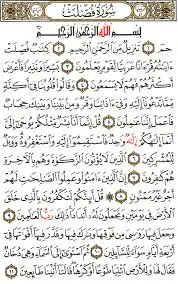 سُورَةُ فُصِّلَتْ
بِسْمِ اللَّهِ الرَّحْمَٰنِ الرَّحِيمِ
حمٓ ١ تَنزِيلٌ مِّنَ الرَّحْمَٰنِ الرَّحِيمِ ٢ كِتَٰبٌ فُصِّلَتْ
ءَايَٰتُهُۥ قُرْءَانًا عَرَبِيًّا لِّقَوْمٍ يَعْلَمُونَ ٣ بَشِيرًا وَنَذِيرًا فَأَعْرَضَ
أَكْثَرُهُمْ فَهُمْ لَا يَسْمَعُونَ ٤ وَقَالُوا۟ قُلُوبُنَا فِىٓ أَكِنَّةٍ
مِّمَّا تَدْعُونَآ إِلَيْهِ وَفِىٓ ءَاذَانِنَا وَقْرٌ وَمِنۢ بَيْنِنَا وَبَيْنِكَ حِجَابٌ
فَاعْمَلْ إِنَّنَا عَٰمِلُونَ ٥ قُلْ إِنَّمَآ أَنَا۠ بَشَرٌ مِّثْلُكُمْ يُوحَىٰٓ إِلَىَّ
أَنَّمَآ إِلَٰهُكُمْ إِلَٰهٌ وَٰحِدٌ فَاسْتَقِيمُوٓا۟ إِلَيْهِ وَاسْتَغْفِرُوهُ وَوَيْلٌ
لِّلْمُشْرِكِينَ ٦ الَّذِينَ لَا يُؤْتُونَ الزَّكَوٰةَ وَهُم بِالْءَاخِرَةِ
هُمْ كَٰفِرُونَ ٧ إِنَّ الَّذِينَ ءَامَنُوا۟ وَعَمِلُوا۟ الصَّٰلِحَٰتِ لَهُمْ
أَجْرٌ غَيْرُ مَمْنُونٍ ٨ قُلْ أَئِنَّكُمْ لَتَكْفُرُونَ بِالَّذِى خَلَقَ
الْأَرْضَ فِى يَوْمَيْنِ وَتَجْعَلُونَ لَهُۥٓ أَندَادًا ذَٰلِكَ رَبُّ الْعَٰلَمِينَ ٩
وَجَعَلَ فِيهَا رَوَٰسِىَ مِن فَوْقِهَا وَبَٰرَكَ فِيهَا وَقَدَّرَ فِيهَآ أَقْوَٰتَهَا فِىٓ
أَرْبَعَةِ أَيَّامٍ سَوَآءً لِّلسَّآئِلِينَ ١٠ ثُمَّ اسْتَوَىٰٓ إِلَى السَّمَآءِ وَهِىَ دُخَانٌ
فَقَالَ لَهَا وَلِلْأَرْضِ ائْتِيَا طَوْعًا أَوْ كَرْهًا قَالَتَآ أَتَيْنَا طَآئِعِينَ ١١